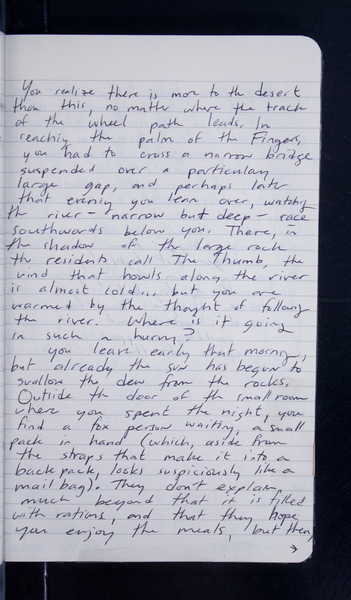 You realize there is more to the desert
than this, no matter where the track
of the wheel path leads. In
reaching the palm of the Fingers,
you had to cross a narrow bridge
suspended over a particularly
large gap, and perhaps later
that evening you lean over, watching
the river – narrow but deep – race
southwards below you. There, in
the shadow of the large rock
the residents call The Thumb, the
wind that howls along the river
is almost cold... but you are
warmed by the thought of following
the river. Where is it going
in such a hurry?
you leave early that morning,
but already the sun has begun to
swallow the dew from the rocks.
Outside the door of the small room
where you spent the night, you
find a fox person waiting, a small
pack in hand (which, aside from
the straps that make it into a
backpack, looks suspiciously like a
mailbag). They don't explain
much beyond that it is filled
with rations, and that they hope
you enjoy the meals, but then,
→